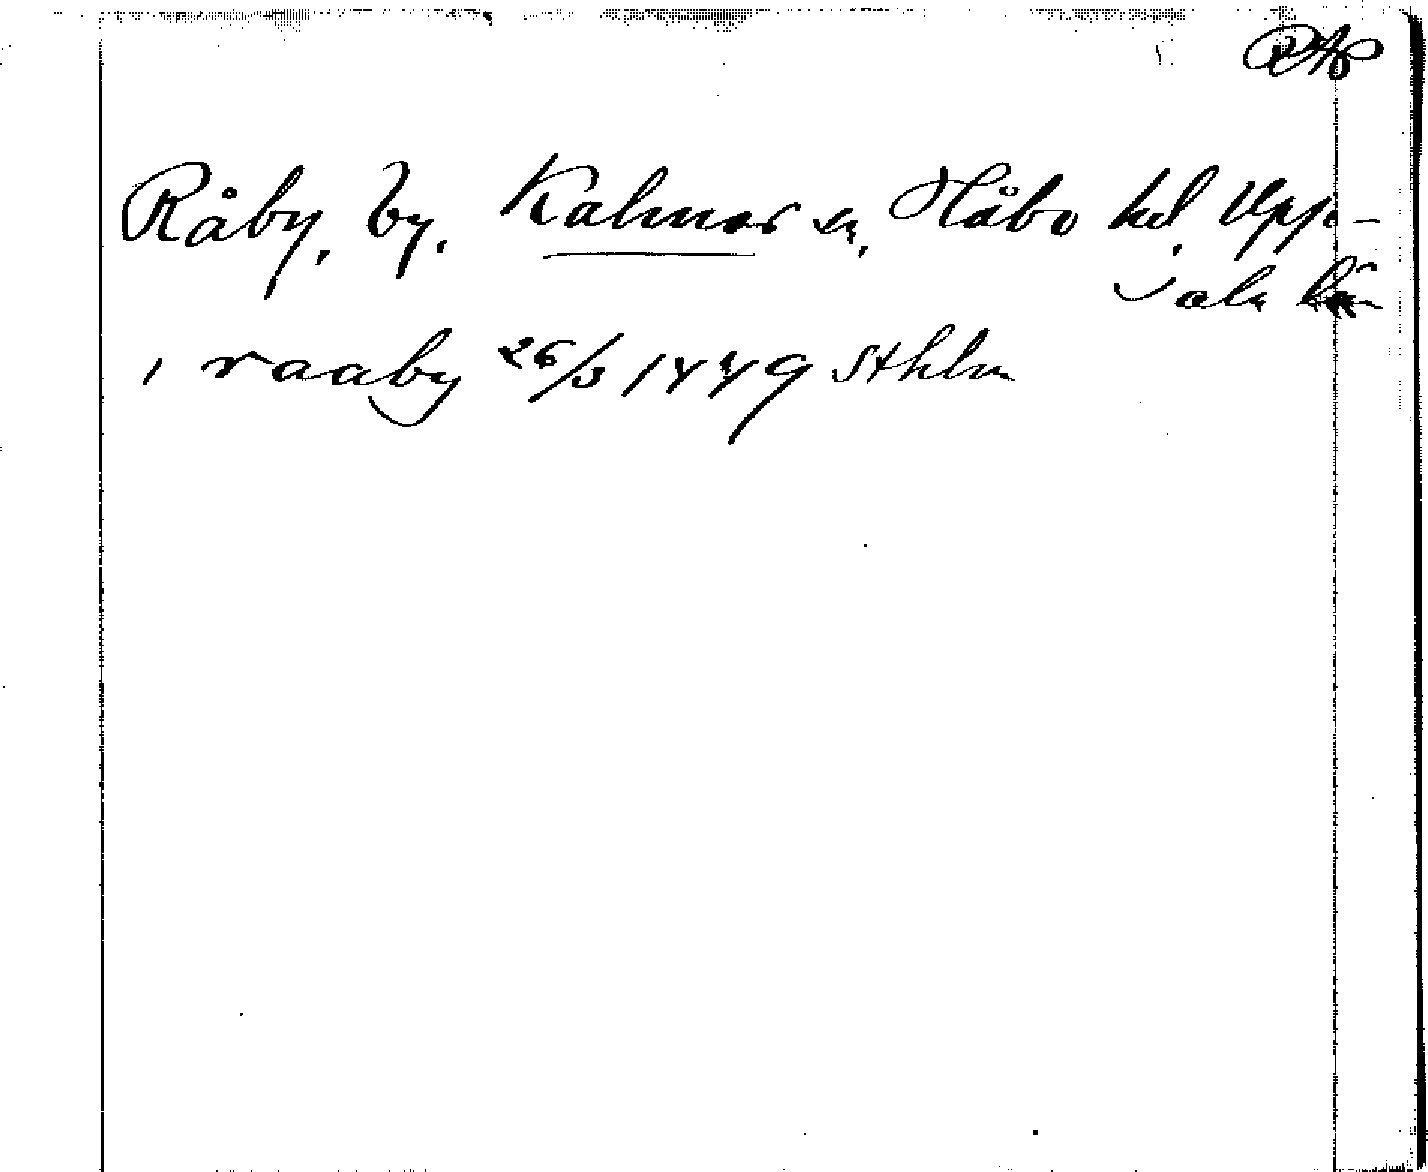 RAp
Råby, by, Kalmar sn, Håbo hd, Upp-
sala län
i raaby 26/3 1449 Sthlm